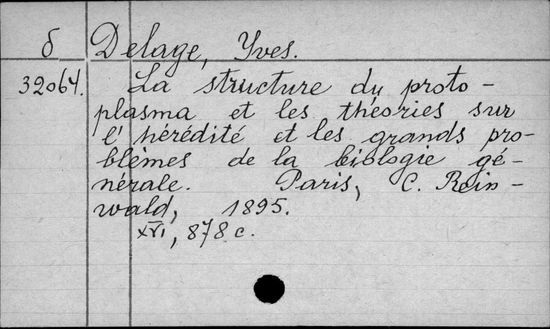 б Delage, Yves.
32064. La structure du proto-
plasma et les théories sur
l'hérédité et les grands pro-
blèmes de la biologie gé-
nérale. Paris, C. Rein-
wald, 1895.
XVI, 878 c.